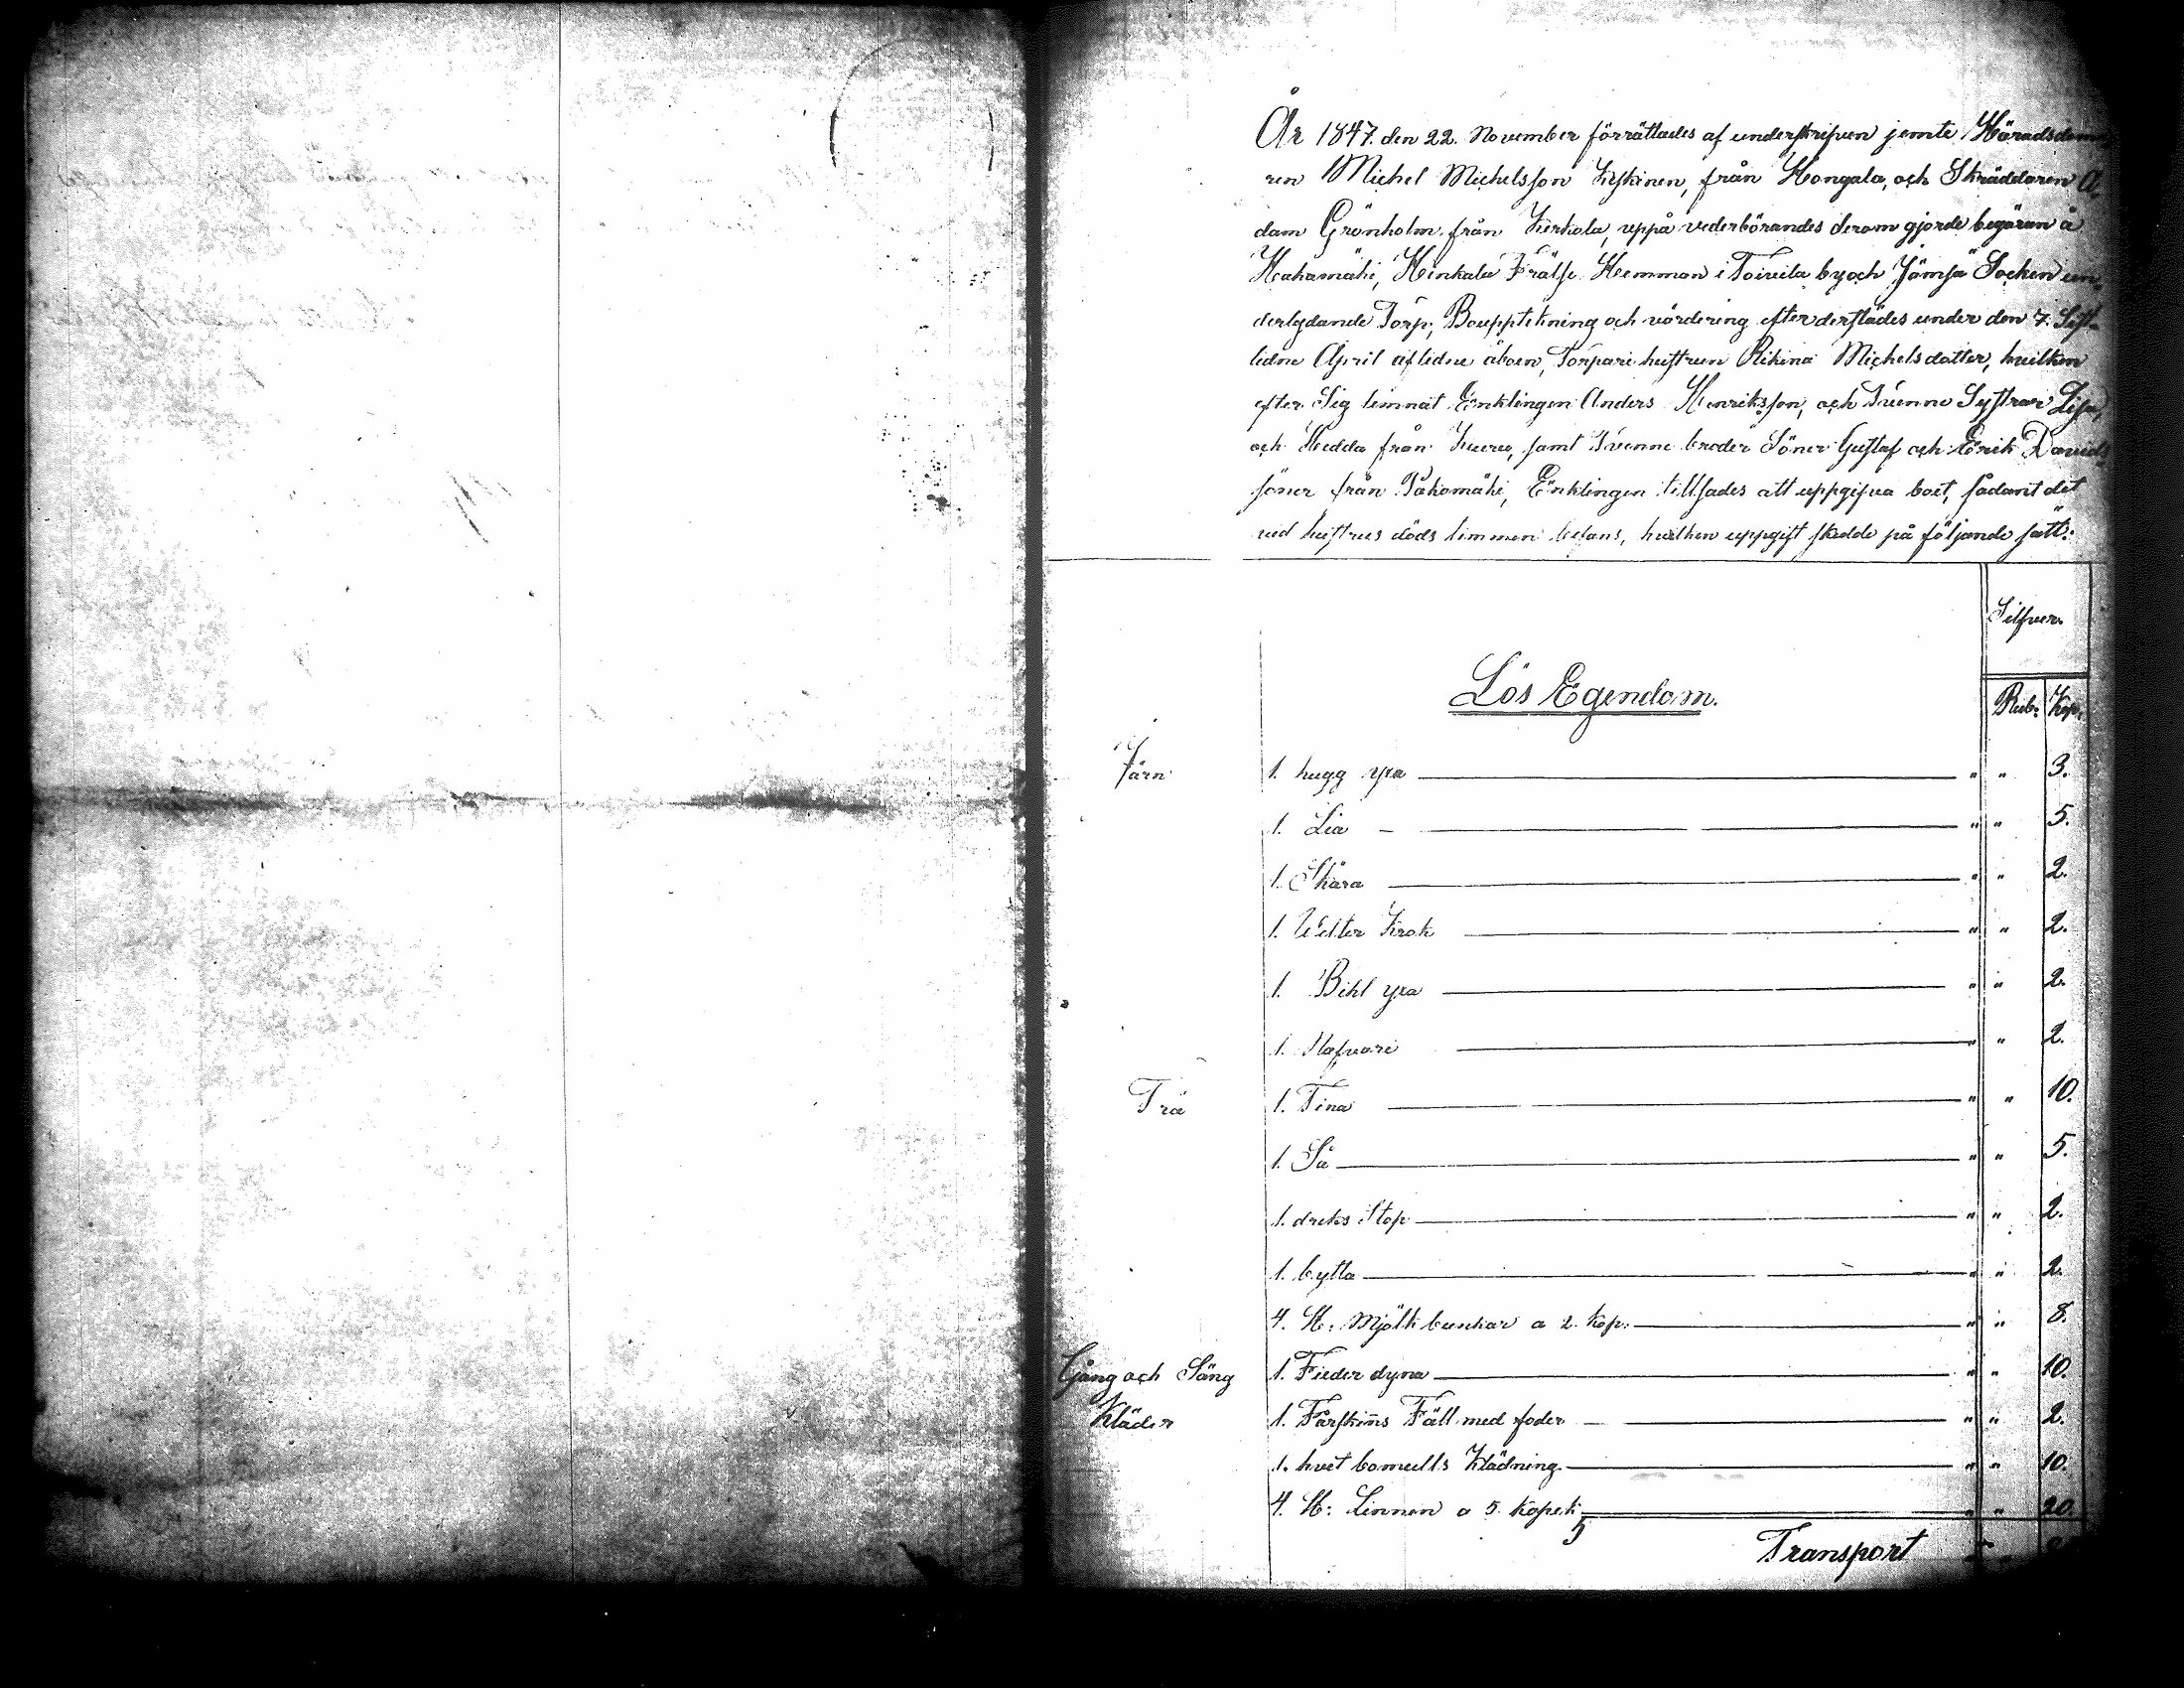 År 1847. den 22. November förrättades af underskrifven jemte Häradsdoma,
ren Michel Michelsson Kyskinen, från Hongala, och Skräddaren A,
dam Grönholm från Kerkola, uppå vederbörandes derom gjorde begäran å
Hakamäki, Hinkala Frälse Hemman i Toivila by och Jämsä Socken un,
derlydande Torp, Bouppteckning och värdering efter derstädes under den 7. Sist-
lidne April aflidne åboen, Torpare hustrun Rikina Michelsdotter, hvilken
efter Sig lemnat Enklingen Anders Henriksson, och Tvenne Systrar Lisa,
och Hedda från Kuru, samt Tvenne broder Söner Gustaf och Erik Davids
söner från Pakomäki, Enklingen tillsades att uppgifva boet, sådant det
vid hustrus döds timmen befans, hvilken uppgift skedde på följande sätt:
Silfver.
Lös Egendom.
Rub: Kop.
Järn 1. hugg yxa " " 3.
1. Lia " " 5.
1. Skära " " 2.
1. Välter Krok " " 2.
1. Bihl yxa " " 2.
1. Nafvare " " 2.
Trä 1. Tina " " 10.
1. Så " " 5.
1. dricks Stop " " 2.
1. bytta " " 2.
4. St: Mjölk bunkar a 2. Kop: " " 8.
Gång och Säng 1. Fieder dyna " " 10.
Kläder 1. Fårskins Fäll med foder " " 2.
1. hvet bomulls Klädning " " 10.
4. St: Linnen a 5. kopek " " 20.
Transport